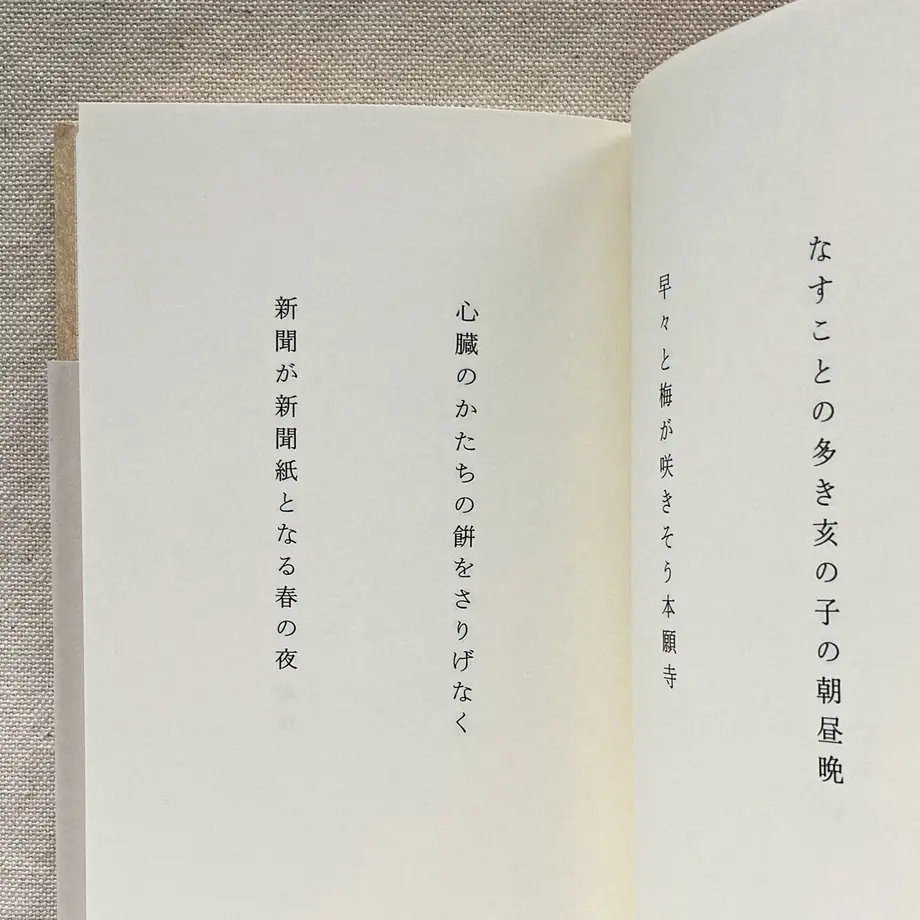 なすことの多き亥の子の朝昼晩
早々と梅が咲きそう本願寺
心臓のかたちの餅をさりげなく
新聞が新聞紙となる春の夜